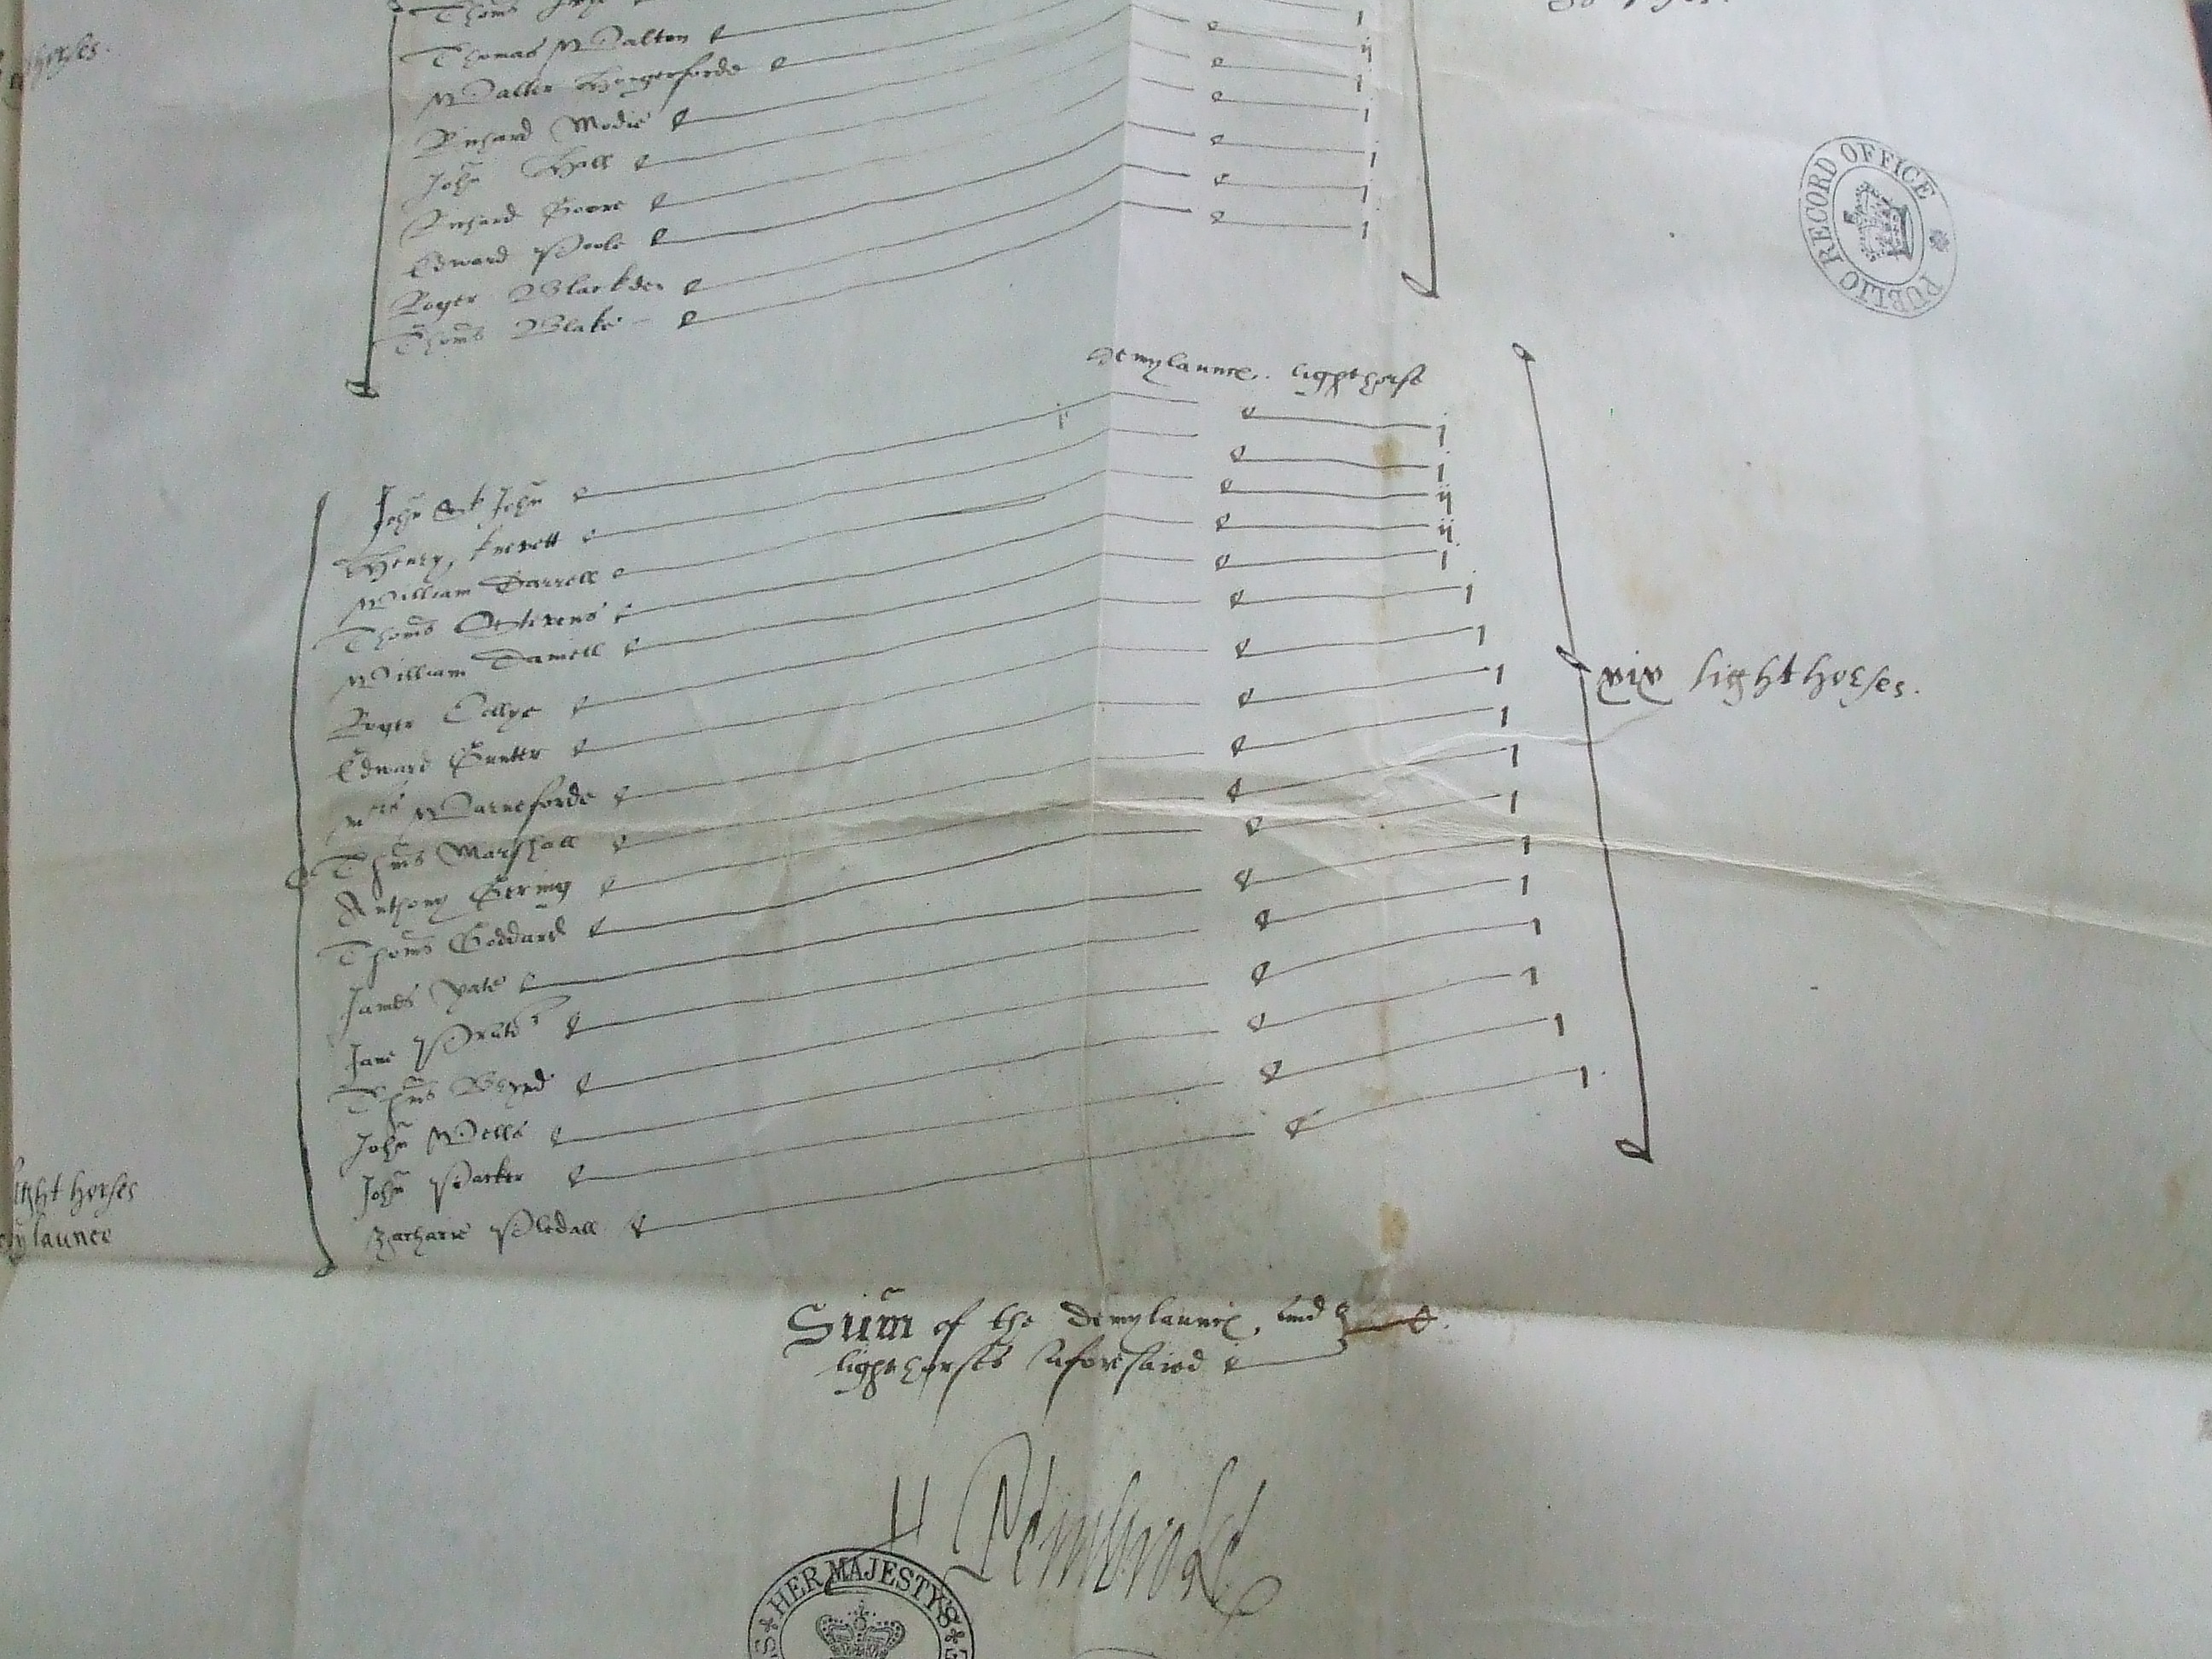 horses.
Thomas Walton j
Walter Hungerforde ij
Richard Modie j
John Hall j
Richard Goore j
Edward Poole j
Roger Blackden j
Thoms Blake j
PUBLIC RECORD OFFICE
Demylaunce. lighthorse
John Snt John j j
Henry Knevett j
William Darrell ij
Thoms Stevens ij
William Daniell j
Roger Collye j
Edward Gunter j
Mrs Warneforde j
Thoms Marshall j
Anthony Gering j
Thoms Goddard j
James Yate j
Jane j
Thoms j
John Wells j
John Parker j
Zacharie Pledall j
xix light horses.
light horses
launce
Sum of the demylaunce, and
lighthorses aforesaied C.
H Pembroke
HER MAJESTY'S